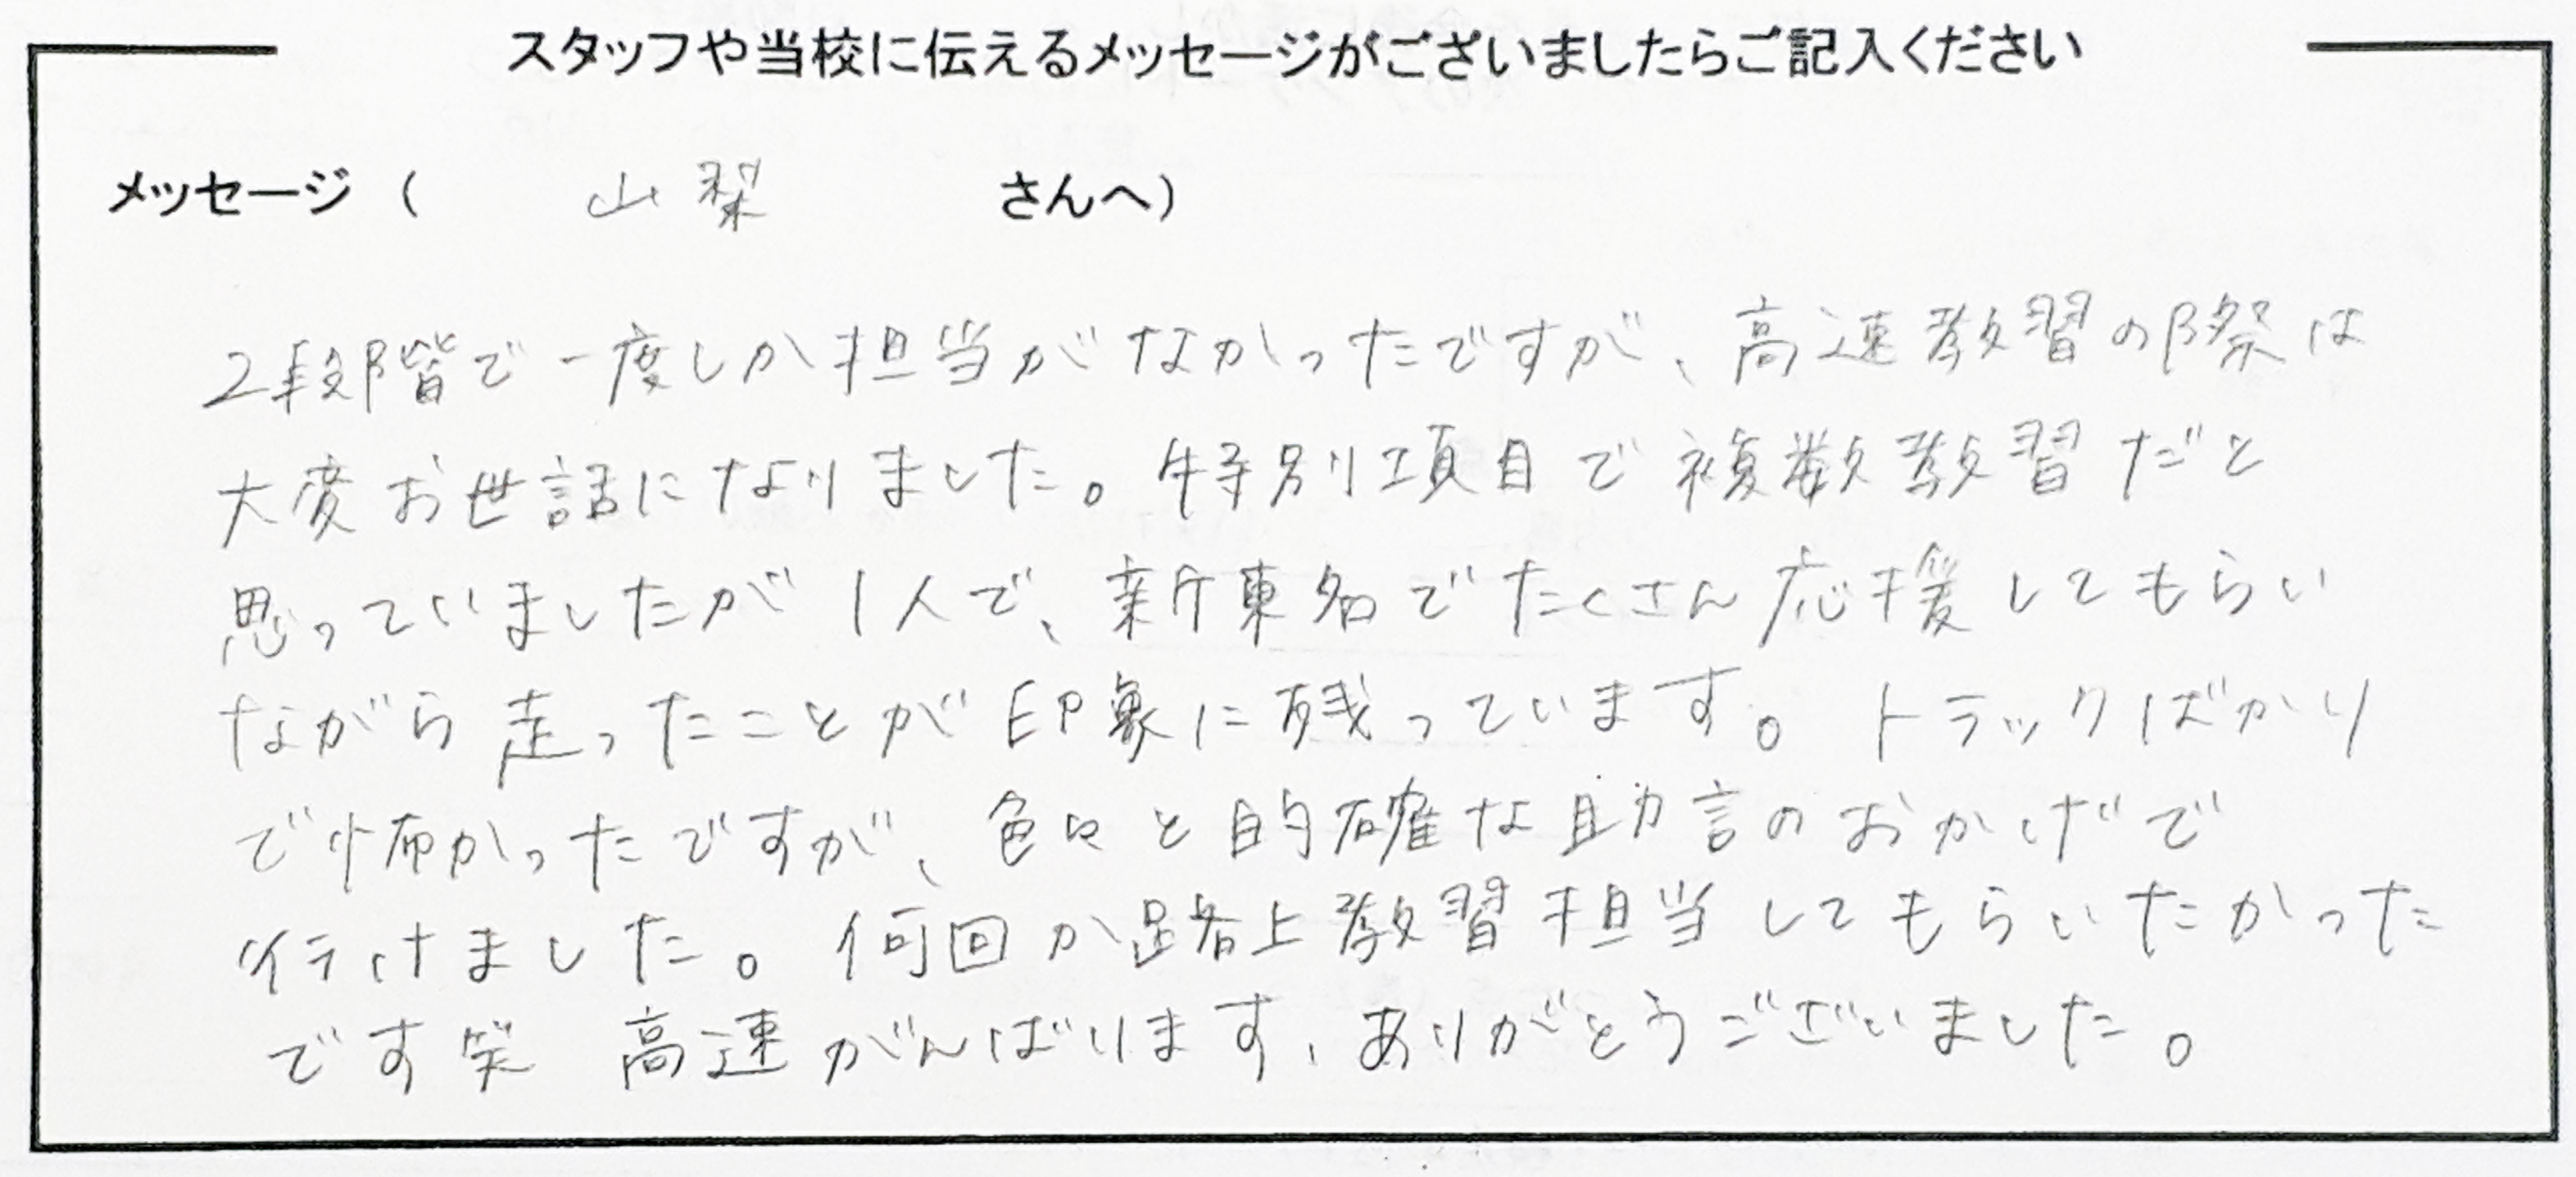 スタッフや当校に伝えるメッセージがございましたらご記入ください
メッセージ（ 山梨 さんへ）
2段階で一度しか担当がなかったですが、高速教習の際は
大変お世話になりました。特別項目で複数教習だと
思っていましたが1人で、新東名でたくさん応援してもらい
ながら走ったことが印象に残っています。トラックばかり
で怖かったですが、色々と的確な助言のおかげで
行けました。何回か路上教習担当してもらいたかった
です笑 高速がんばります、ありがとうございました。